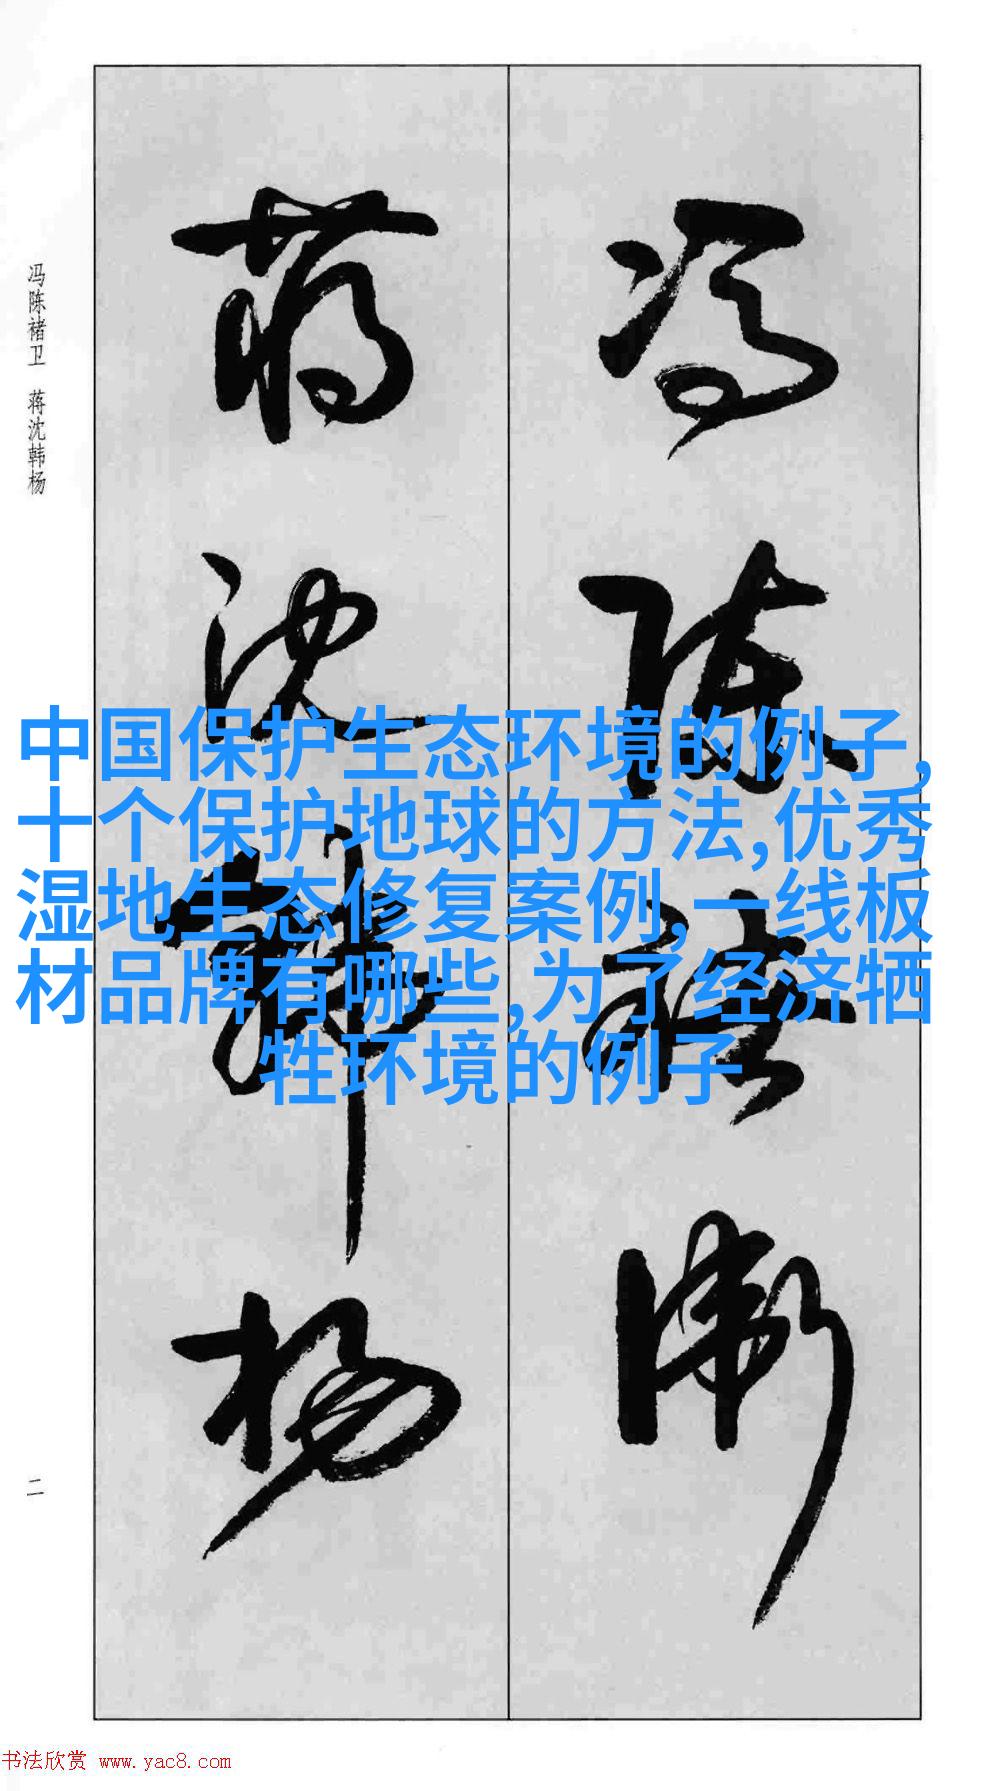 冯陈褚卫 蒋沈韩杨
冯陈褚卫
蒋沈韩杨
中国保护生态环境的例子,
十个保护地球的方法,优秀
湿地生态修复案例,一线板
材品牌有哪些,为了经济牺
牲环境的例子
二
书法欣赏 www.yac8.com